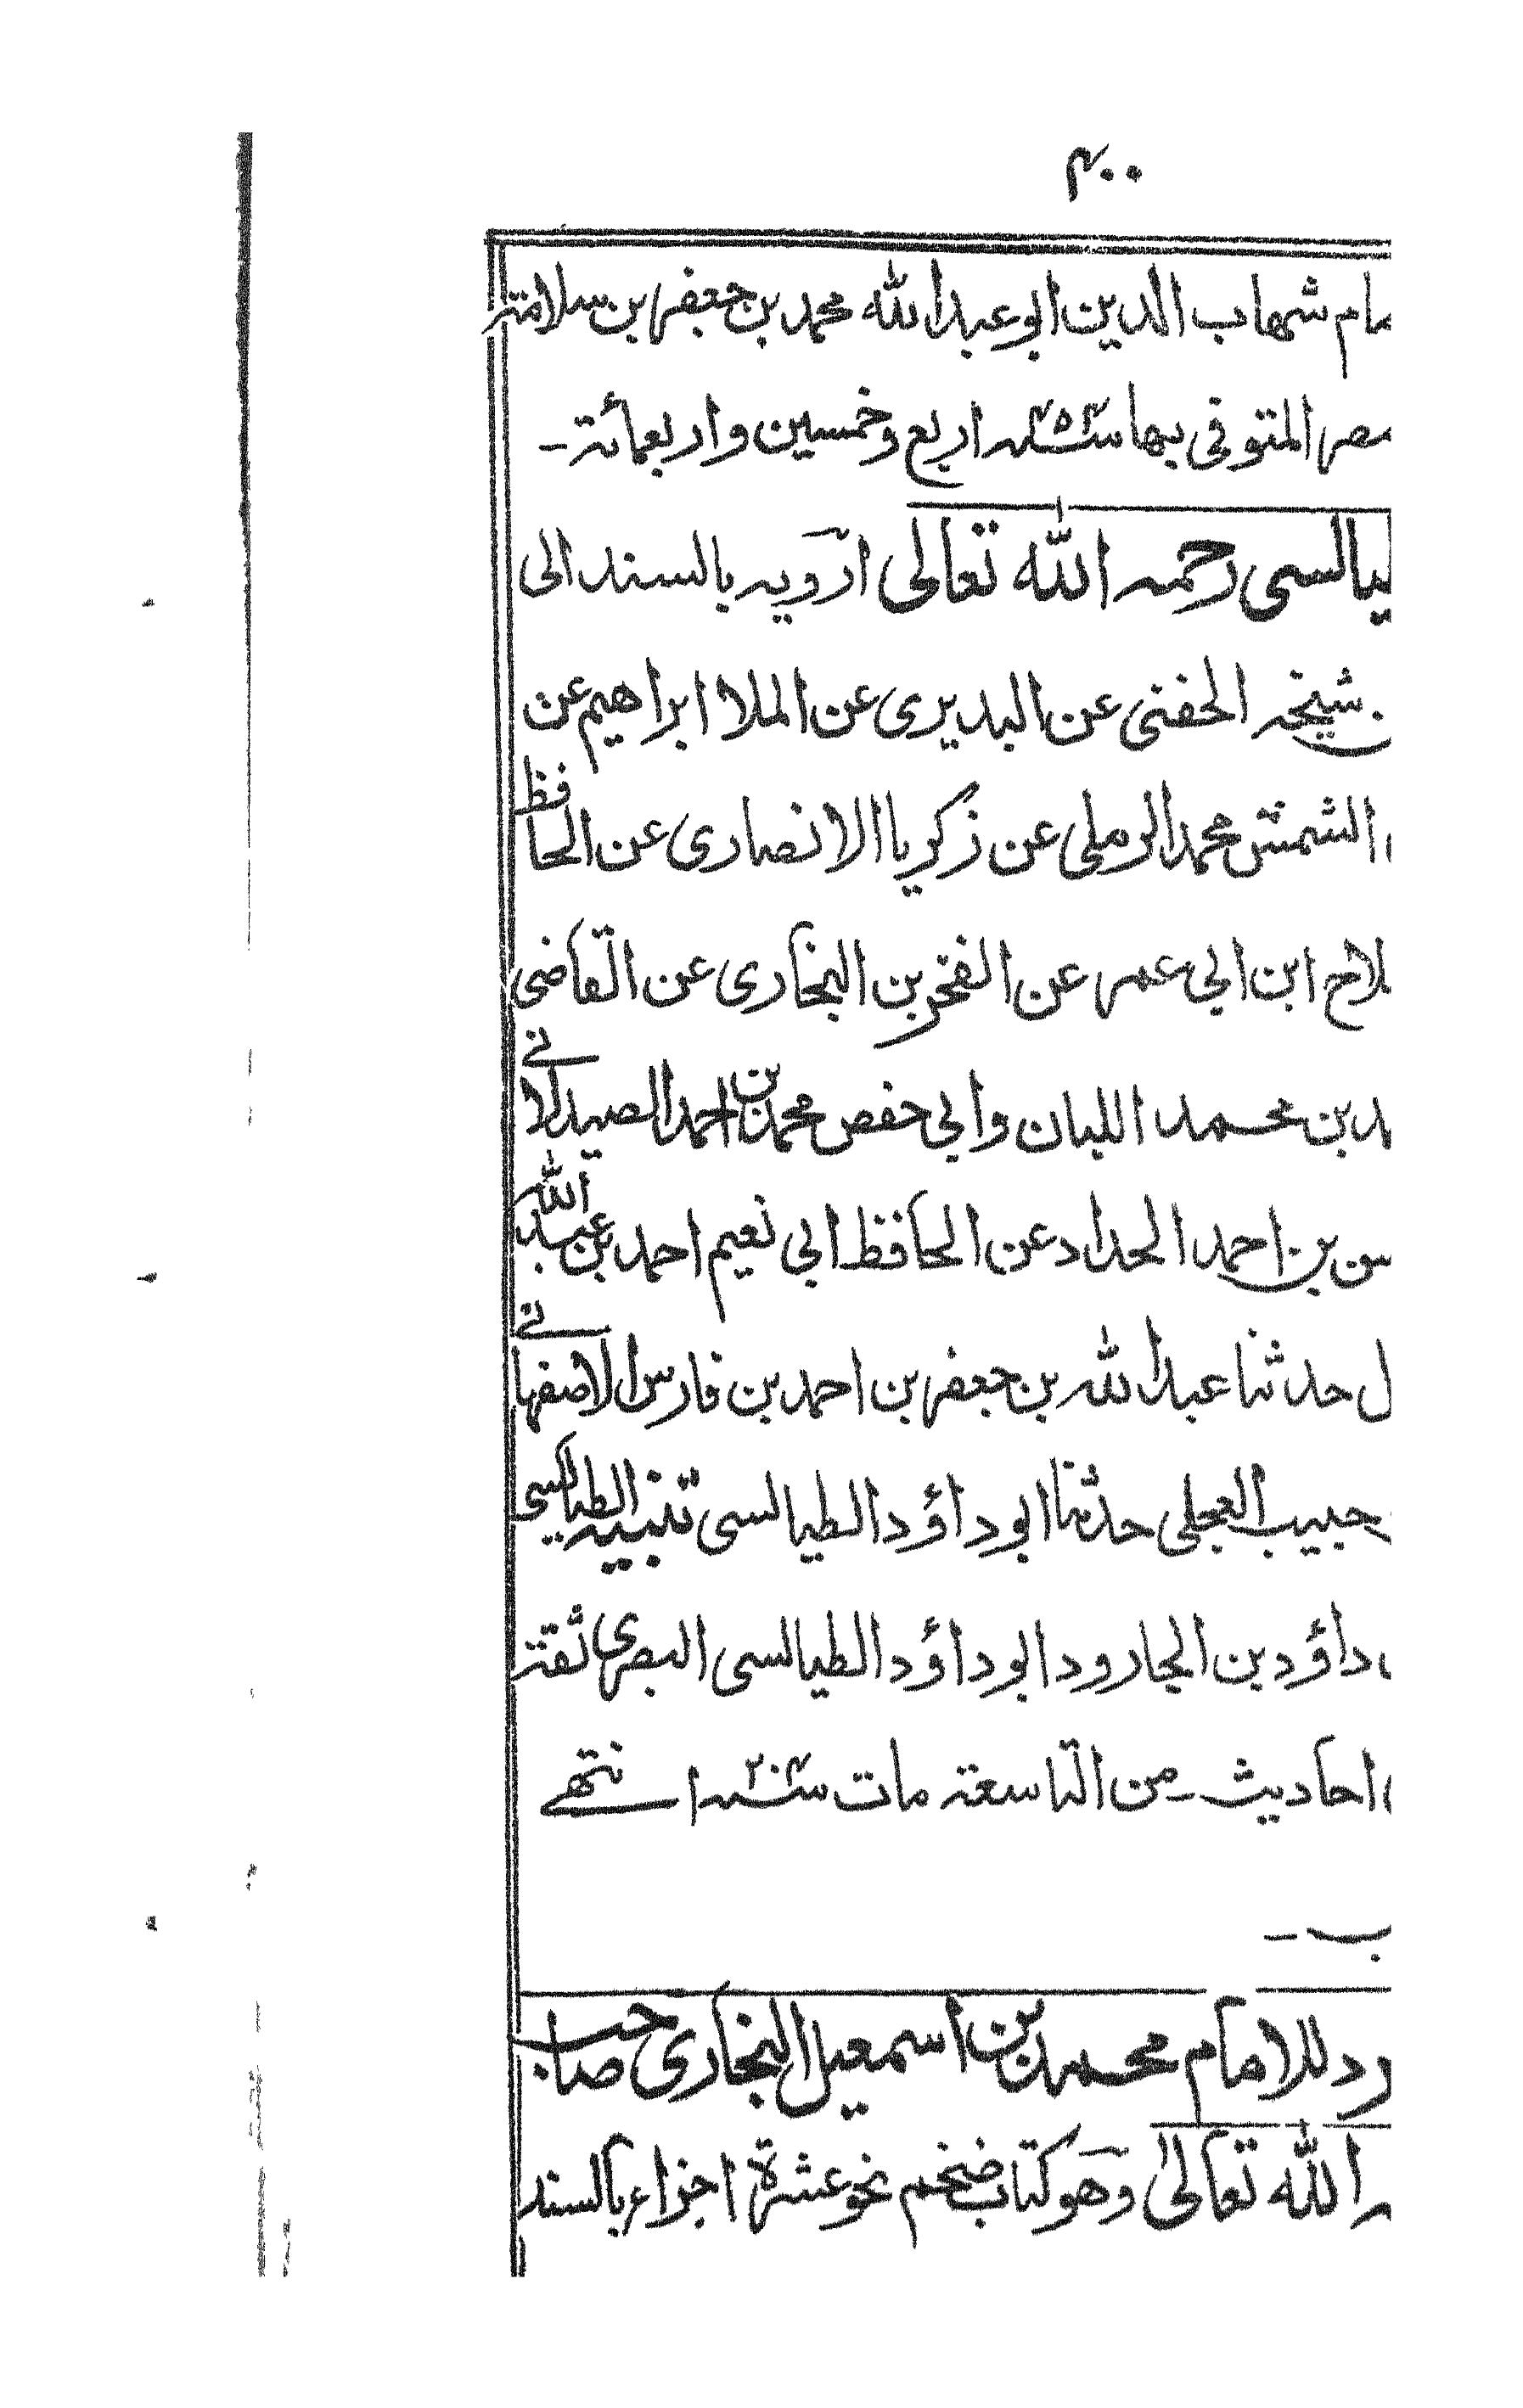 ٣٠٠
مام شهاب الدين ابو عبدالله محمد بن جعفر بن سلامة
مصر المتوفى بها سنة ٤٥٤ اربع وخمسين واربعمائة ـ
ليالسى رحمه الله تعالى ارويه بالسند الى
شيخه الحفنى عن البديرى عن الملا ابراهيم عن
الشمس محمد الرملى عن زكريا الانصارى عن الحافظ
لاح ابن ابي عمر عن الفخر بن البخارى عن القاضى
مد بن محمد اللبان وابي حفص محمد بن احمد الصيدلانے
سن بن احمد الحداد عن الحافظ ابي نعيم احمد بن عبد الله
ل حدثنا عبدالله بن جعفر بن احمد بن فارس الاصفهانے
حبيب العجلى حدثنا ابو داؤد الطيالسى تنبيه الطيالسى
داؤد بن الجارود ابو داؤد الطيالسى البصرى ثقة
احاديث ـ من التاسعة مات سنة ٢٠٤ انتهے
ب ـ
رد للامام محمد بن اسمعيل البخارى صاحب
ه الله تعالى وهو كتاب ضخم نحو عشرة اجزاء بالسند